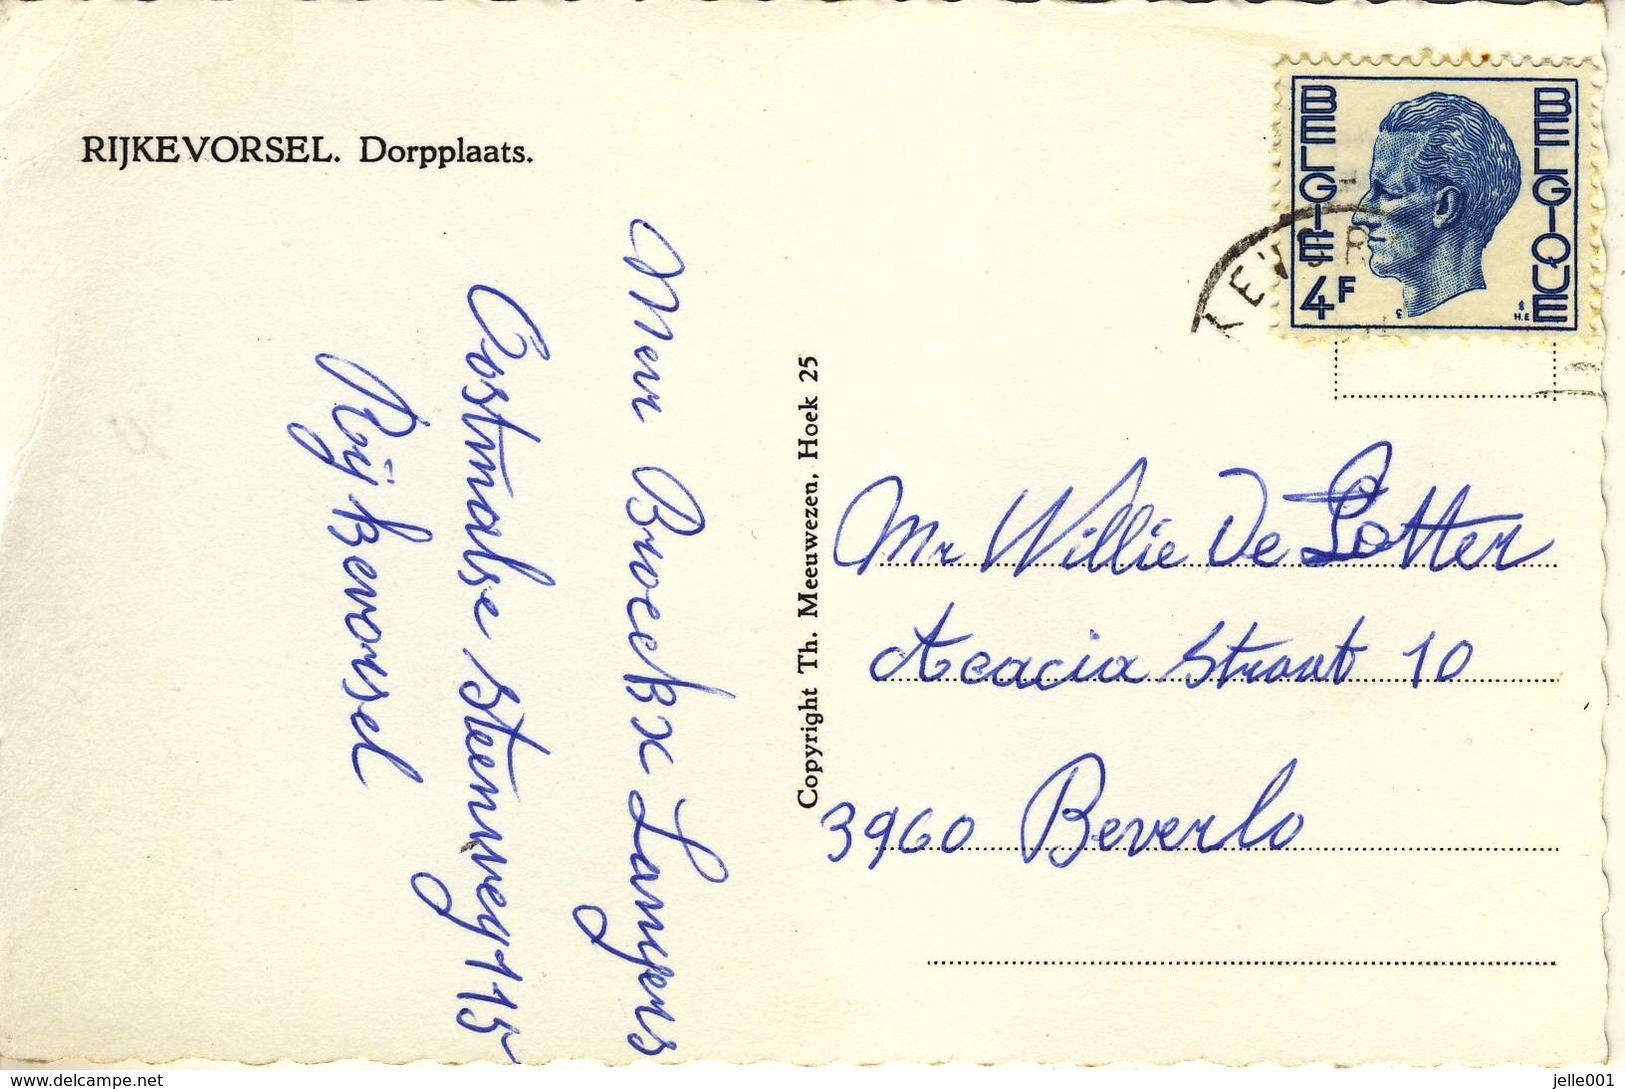 RIJKEVORSEL. Dorpplaats.
BELGIE
BELGIQUE
4F
H.E
Mevr Broeckx Lampers
Oostmalse Steenweg 115
Rijkevorsel
Copyright Th. Meeuwezen, Hoek 25
Mr Willie De Lotter
Acacia Straat 10
3960 Beverlo
www.delcampe.net
jelle001